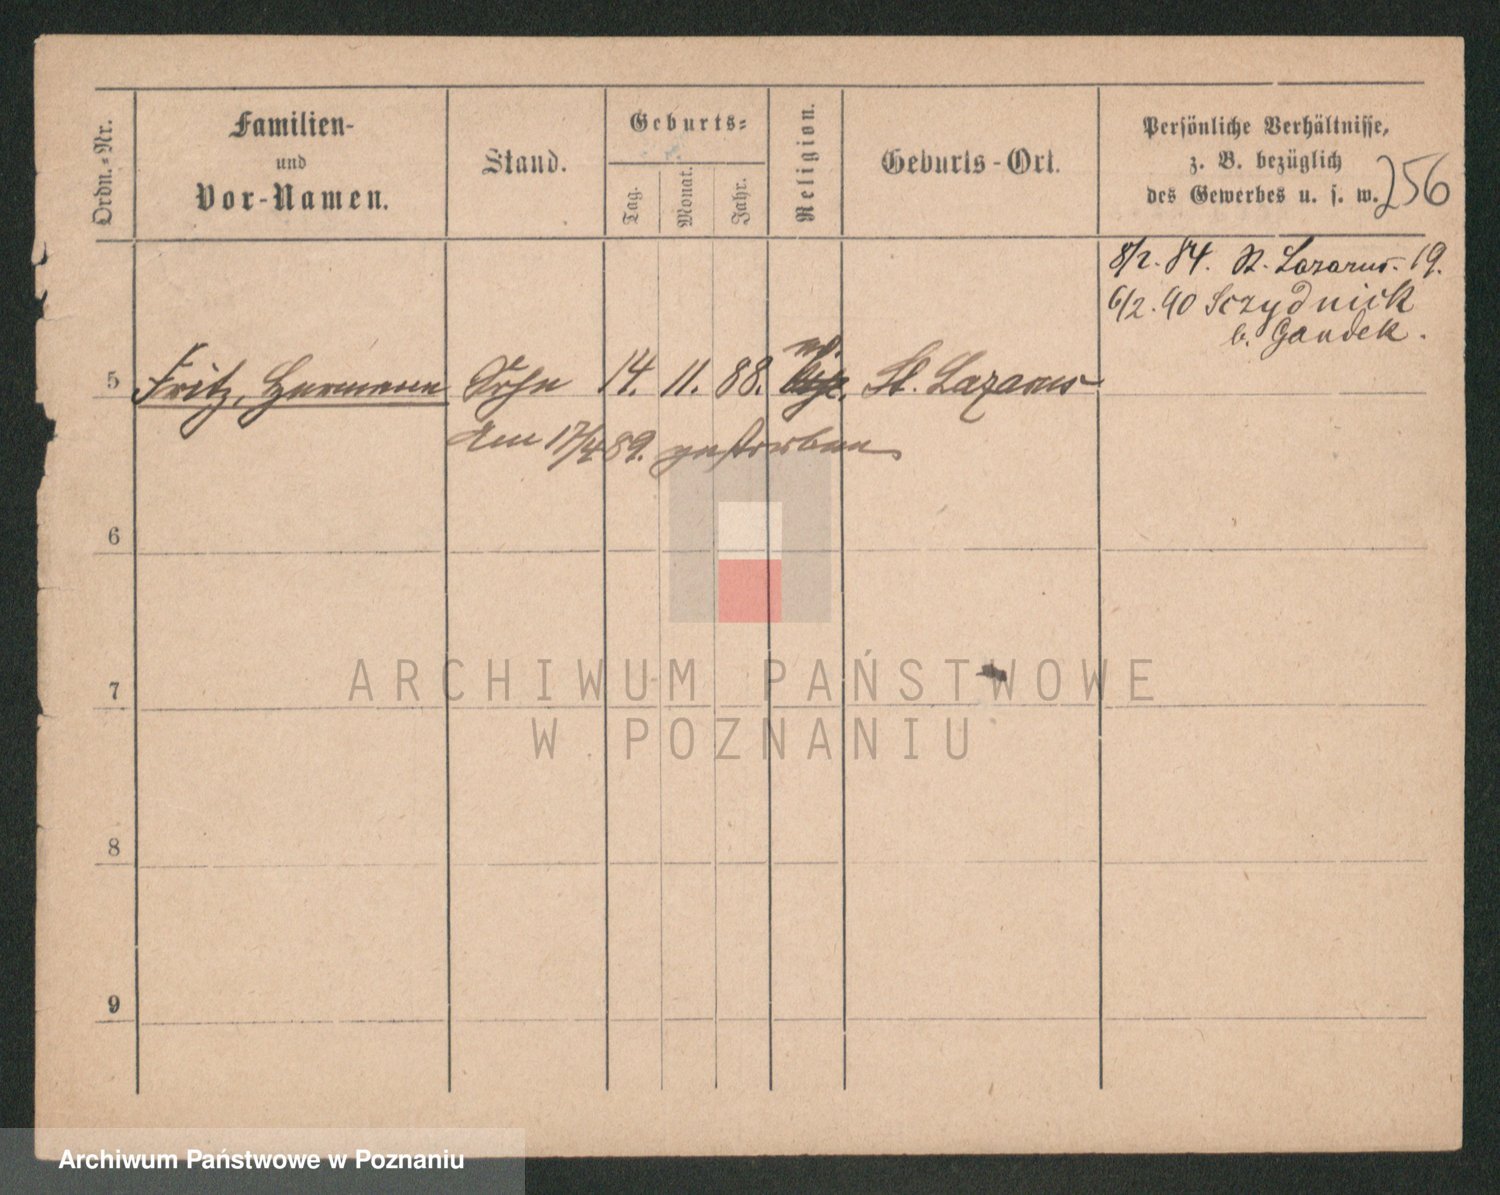 Ordn.-Nr.
Familien-
und
Vor-Namen.
Stand.
Geburts-
Tag.
Monat.
Jahr.
Religion.
Geburts-Ort.
Persönliche Verhältnisse,
z. B. bezüglich
des Gewerbes u. s. w.
256
8/2. 84. St. Lazarus. 19.
6/2. 90 Sczydnick
b. Gondek.
5 Fritz, Hermann Sohn 14. 11. 88. ev. St. Lazarus
Am 17/4 89. gestorben
6
7
8
9
ARCHIWUM PAŃSTWOWE
W POZNANIU
Archiwum Państwowe w Poznaniu